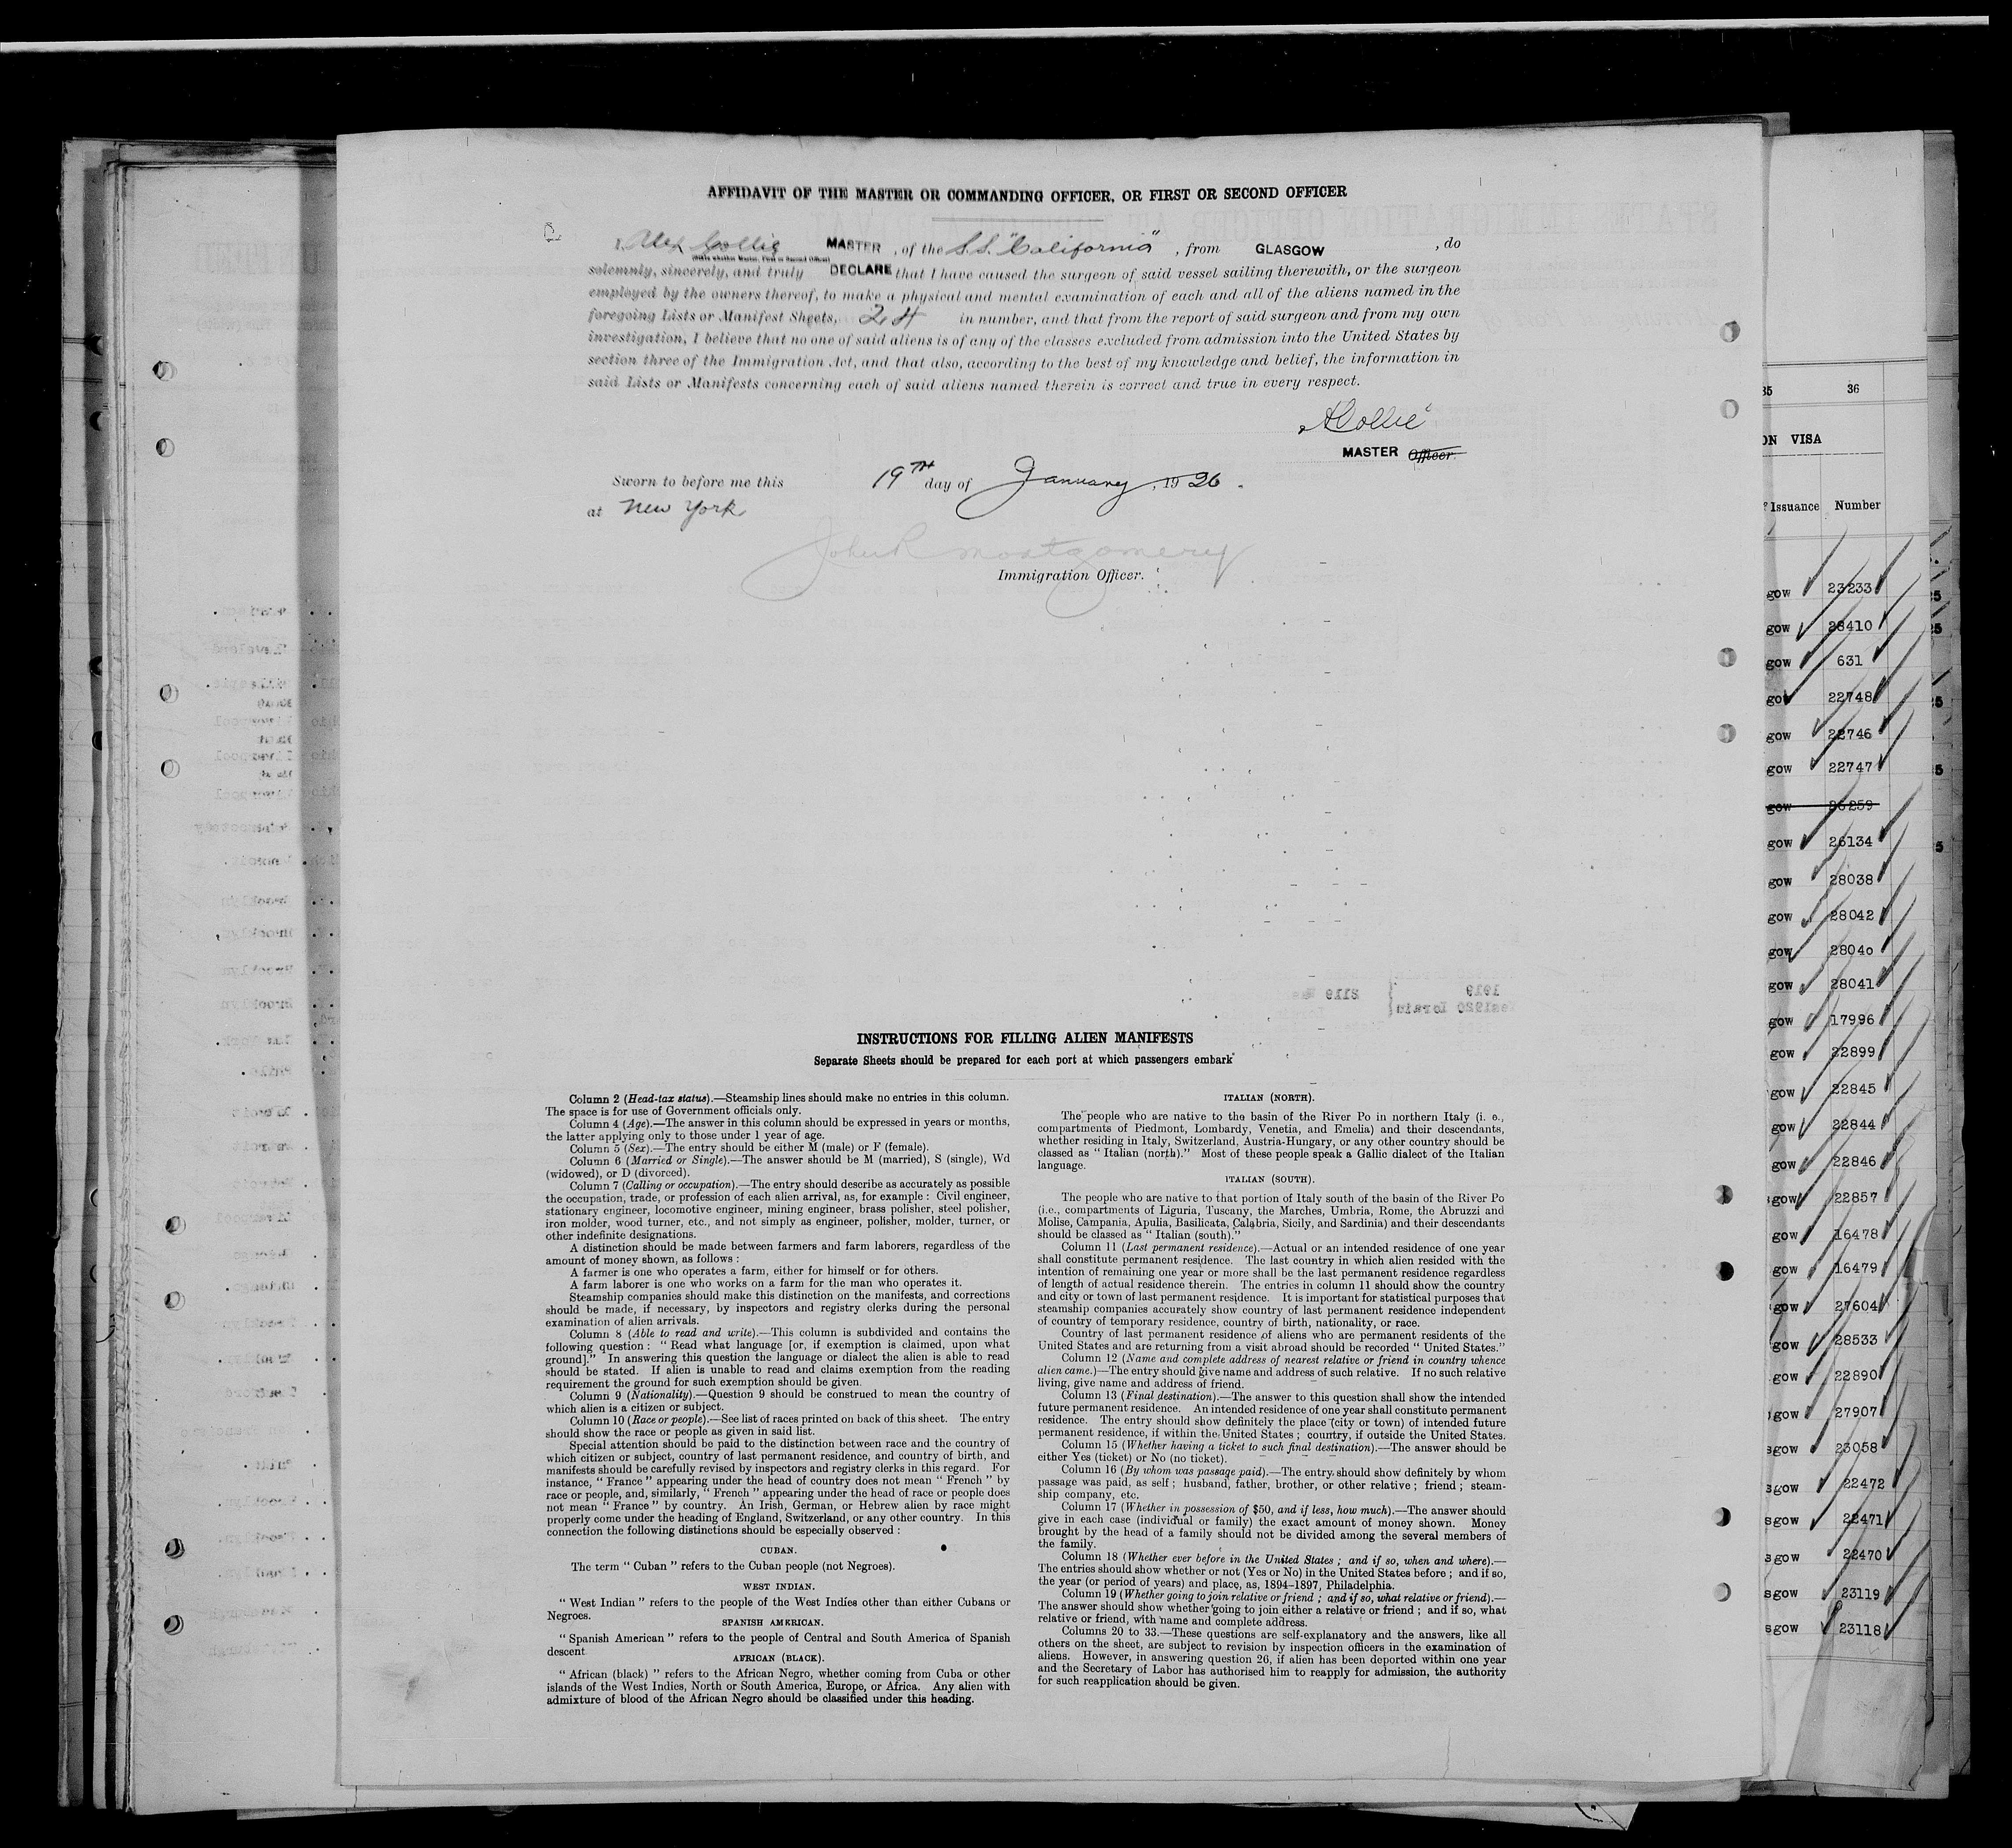 AFFIDAVIT OF THE MASTER OR COMMANDING OFFICER, OR FIRST OR SECOND OFFICER
I, Alex Collie MASTER, of the S.S. "California", from GLASGOW, do
(State whether Master, First or Second Officer)
solemnly, sincerely, and truly DECLARE that I have caused the surgeon of said vessel sailing therewith, or the surgeon
employed by the owners thereof, to make a physical and mental examination of each and all of the aliens named in the
foregoing Lists or Manifest Sheets, 24 in number, and that from the report of said surgeon and from my own
investigation, I believe that no one of said aliens is of any of the classes excluded from admission into the United States by
section three of the Immigration Act, and that also, according to the best of my knowledge and belief, the information in
said Lists or Manifests concerning each of said aliens named therein is correct and true in every respect.
ACollie
MASTER Officer.
Sworn to before me this 19TH day of January, 1926.
at New York
John R Montgomery
Immigration Officer.
INSTRUCTIONS FOR FILLING ALIEN MANIFESTS
Separate Sheets should be prepared for each port at which passengers embark
Column 2 (Head-tax status).—Steamship lines should make no entries in this column.
The space is for use of Government officials only.
Column 4 (Age).—The answer in this column should be expressed in years or months,
the latter applying only to those under 1 year of age.
Column 5 (Sex).—The entry should be either M (male) or F (female).
Column 6 (Married or Single).—The answer should be M (married), S (single), Wd
(widowed), or D (divorced).
Column 7 (Calling or occupation).—The entry should describe as accurately as possible
the occupation, trade, or profession of each alien arrival, as, for example : Civil engineer,
stationary engineer, locomotive engineer, mining engineer, brass polisher, steel polisher,
iron molder, wood turner, etc., and not simply as engineer, polisher, molder, turner, or
other indefinite designations.
A distinction should be made between farmers and farm laborers, regardless of the
amount of money shown, as follows :
A farmer is one who operates a farm, either for himself or for others.
A farm laborer is one who works on a farm for the man who operates it.
Steamship companies should make this distinction on the manifests, and corrections
should be made, if necessary, by inspectors and registry clerks during the personal
examination of alien arrivals.
Column 8 (Able to read and write).—This column is subdivided and contains the
following question : " Read what language [or, if exemption is claimed, upon what
ground]." In answering this question the language or dialect the alien is able to read
should be stated. If alien is unable to read and claims exemption from the reading
requirement the ground for such exemption should be given.
Column 9 (Nationality).—Question 9 should be construed to mean the country of
which alien is a citizen or subject.
Column 10 (Race or people).—See list of races printed on back of this sheet. The entry
should show the race or people as given in said list.
Special attention should be paid to the distinction between race and the country of
which citizen or subject, country of last permanent residence, and country of birth, and
manifests should be carefully revised by inspectors and registry clerks in this regard. For
instance, " France " appearing under the head of country does not mean " French " by
race or people, and, similarly, " French " appearing under the head of race or people does
not mean " France " by country. An Irish, German, or Hebrew alien by race might
properly come under the heading of England, Switzerland, or any other country. In this
connection the following distinctions should be especially observed :
CUBAN.
The term " Cuban " refers to the Cuban people (not Negroes).
WEST INDIAN.
" West Indian " refers to the people of the West Indies other than either Cubans or
Negroes.
SPANISH AMERICAN.
" Spanish American " refers to the people of Central and South America of Spanish
descent
AFRICAN (BLACK).
" African (black) " refers to the African Negro, whether coming from Cuba or other
islands of the West Indies, North or South America, Europe, or Africa. Any alien with
admixture of blood of the African Negro should be classified under this heading.
ITALIAN (NORTH).
The people who are native to the basin of the River Po in northern Italy (i. e.,
compartments of Piedmont, Lombardy, Venetia, and Emelia) and their descendants,
whether residing in Italy, Switzerland, Austria-Hungary, or any other country should be
classed as " Italian (north)." Most of these people speak a Gallic dialect of the Italian
language.
ITALIAN (SOUTH).
The people who are native to that portion of Italy south of the basin of the River Po
(i.e., compartments of Liguria, Tuscany, the Marches, Umbria, Rome, the Abruzzi and
Molise, Campania, Apulia, Basilicata, Calabria, Sicily, and Sardinia) and their descendants
should be classed as " Italian (south)."
Column 11 (Last permanent residence).—Actual or an intended residence of one year
shall constitute permanent residence. The last country in which alien resided with the
intention of remaining one year or more shall be the last permanent residence regardless
of length of actual residence therein. The entries in column 11 should show the country
and city or town of last permanent residence. It is important for statistical purposes that
steamship companies accurately show country of last permanent residence independent
of country of temporary residence, country of birth, nationality, or race.
Country of last permanent residence of aliens who are permanent residents of the
United States and are returning from a visit abroad should be recorded " United States."
Column 12 (Name and complete address of nearest relative or friend in country whence
alien came.)—The entry should give name and address of such relative. If no such relative
living, give name and address of friend.
Column 13 (Final destination).—The answer to this question shall show the intended
future permanent residence. An intended residence of one year shall constitute permanent
residence. The entry should show definitely the place (city or town) of intended future
permanent residence, if within the United States ; country, if outside the United States.
Column 15 (Whether having a ticket to such final destination).—The answer should be
either Yes (ticket) or No (no ticket).
Column 16 (By whom was passage paid).—The entry should show definitely by whom
passage was paid, as self ; husband, father, brother, or other relative ; friend ; steam-
ship company, etc.
Column 17 (Whether in possession of $50, and if less, how much).—The answer should
give in each case (individual or family) the exact amount of money shown. Money
brought by the head of a family should not be divided among the several members of
the family.
Column 18 (Whether ever before in the United States ; and if so, when and where).—
The entries should show whether or not (Yes or No) in the United States before ; and if so,
the year (or period of years) and place, as, 1894-1897, Philadelphia.
Column 19 (Whether going to join relative or friend ; and if so, what relative or friend).—
The answer should show whether going to join either a relative or friend ; and if so, what
relative or friend, with name and complete address.
Columns 20 to 33.—These questions are self-explanatory and the answers, like all
others on the sheet, are subject to revision by inspection officers in the examination of
aliens. However, in answering question 26, if alien has been deported within one year
and the Secretary of Labor has authorised him to reapply for admission, the authority
for such reapplication should be given.
35 36
ON VISA
f Issuance Number
gow 23233
gow 28410
gow 631
gow 22748
gow 22746
gow 22747
gow 26259
gow 26134
gow 28038
gow 28042
gow 28040
gow 28041
gow 17996
gow 22899
gow 22845
gow 22844
gow 22846
sgow 22857
gow 16478
gow 16479
gow 27604
gow 28533
gow 22890
gow 27907
sgow 23058
sgow 22472
sgow 22471
sgow 22470
sgow 23119
sgow 23118